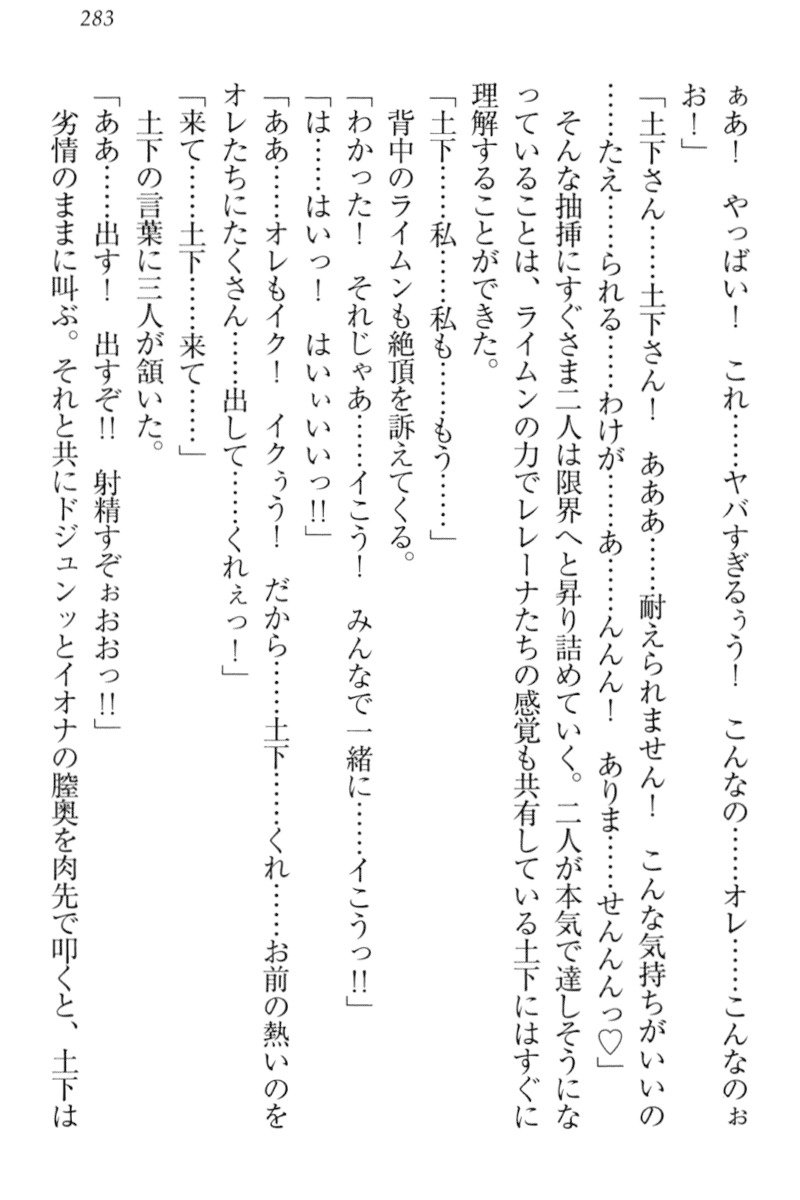 283
ぁあ！　やっばい！　これ……ヤバすぎるぅう！　こんなの……オレ……こんなのぉ
お！」
「土下さん……土下さん！　あああ……耐えられません！　こんな気持ちがいいの
……たえ……られる……わけが……あ……んんん！　ありま……せんんんっ♡」
そんな抽挿にすぐさま二人は限界へと昇り詰めていく。二人が本気で達しそうにな
っていることは、ライムンの力でレレーナたちの感覚も共有している土下にはすぐに
理解することができた。
「土下……私……私も……もう……」
背中のライムンも絶頂を訴えてくる。
「わかった！　それじゃあ……イこう！　みんなで一緒に……イこうっ!!」
「は……はいっ！　はいぃいいっ!!」
「ああ……オレもイク！　イクぅう！　だから……土下……くれ……お前の熱いのを
オレたちにたくさん……出して……くれぇっ！」
「来て……土下……来て……」
土下の言葉に三人が頷いた。
「ああ……出す！　出すぞ!!　射精すぞぉおおっ!!」
劣情のままに叫ぶ。それと共にドジュンッとイオナの膣奥を肉先で叩くと、土下は